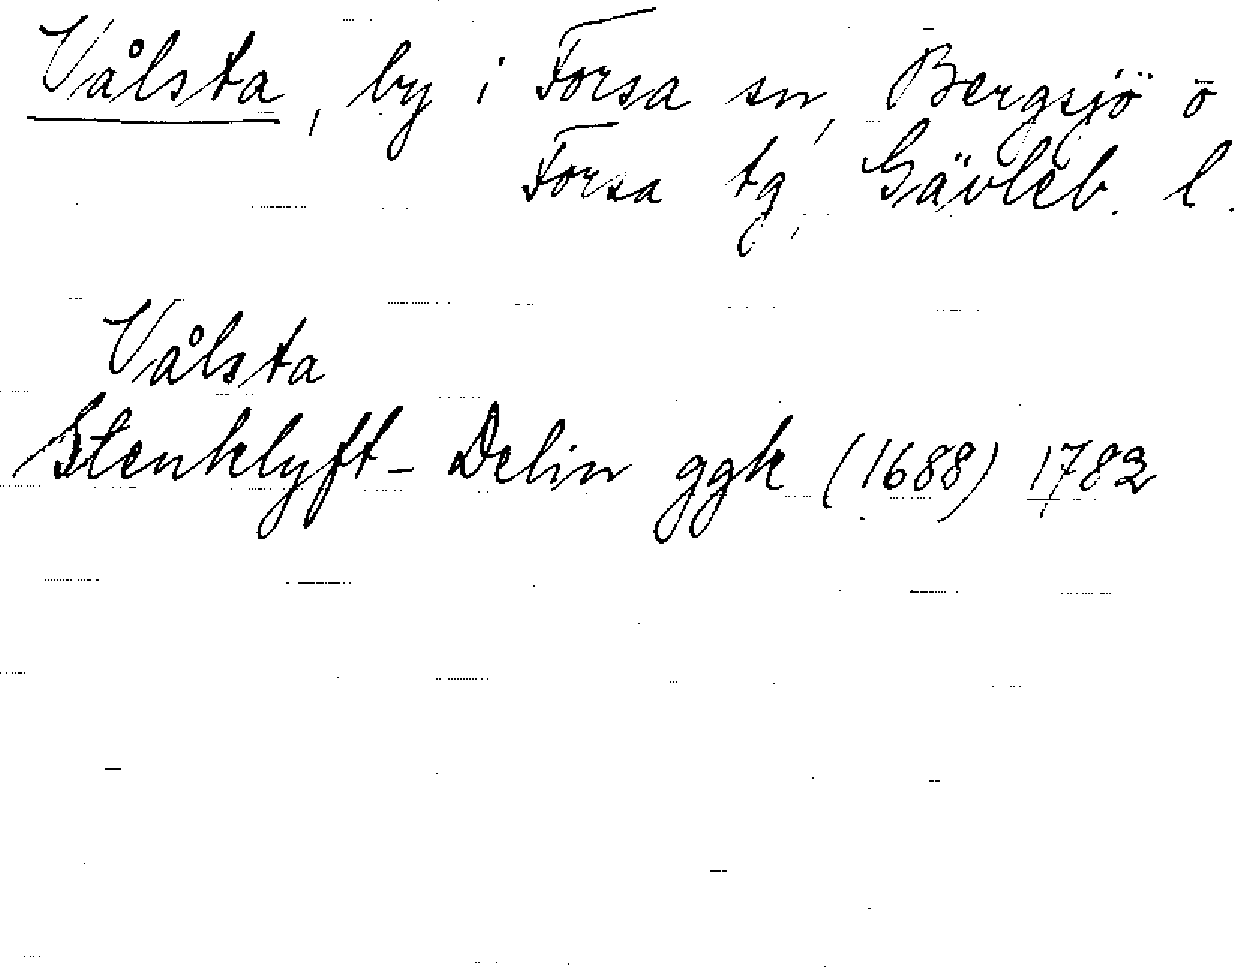 Vålsta, by i Forsa sn, Bergsjö o
Forsa tg, Gävleb. l.
Vålsta
Stenklyft - Delin ggk (1688) 1782